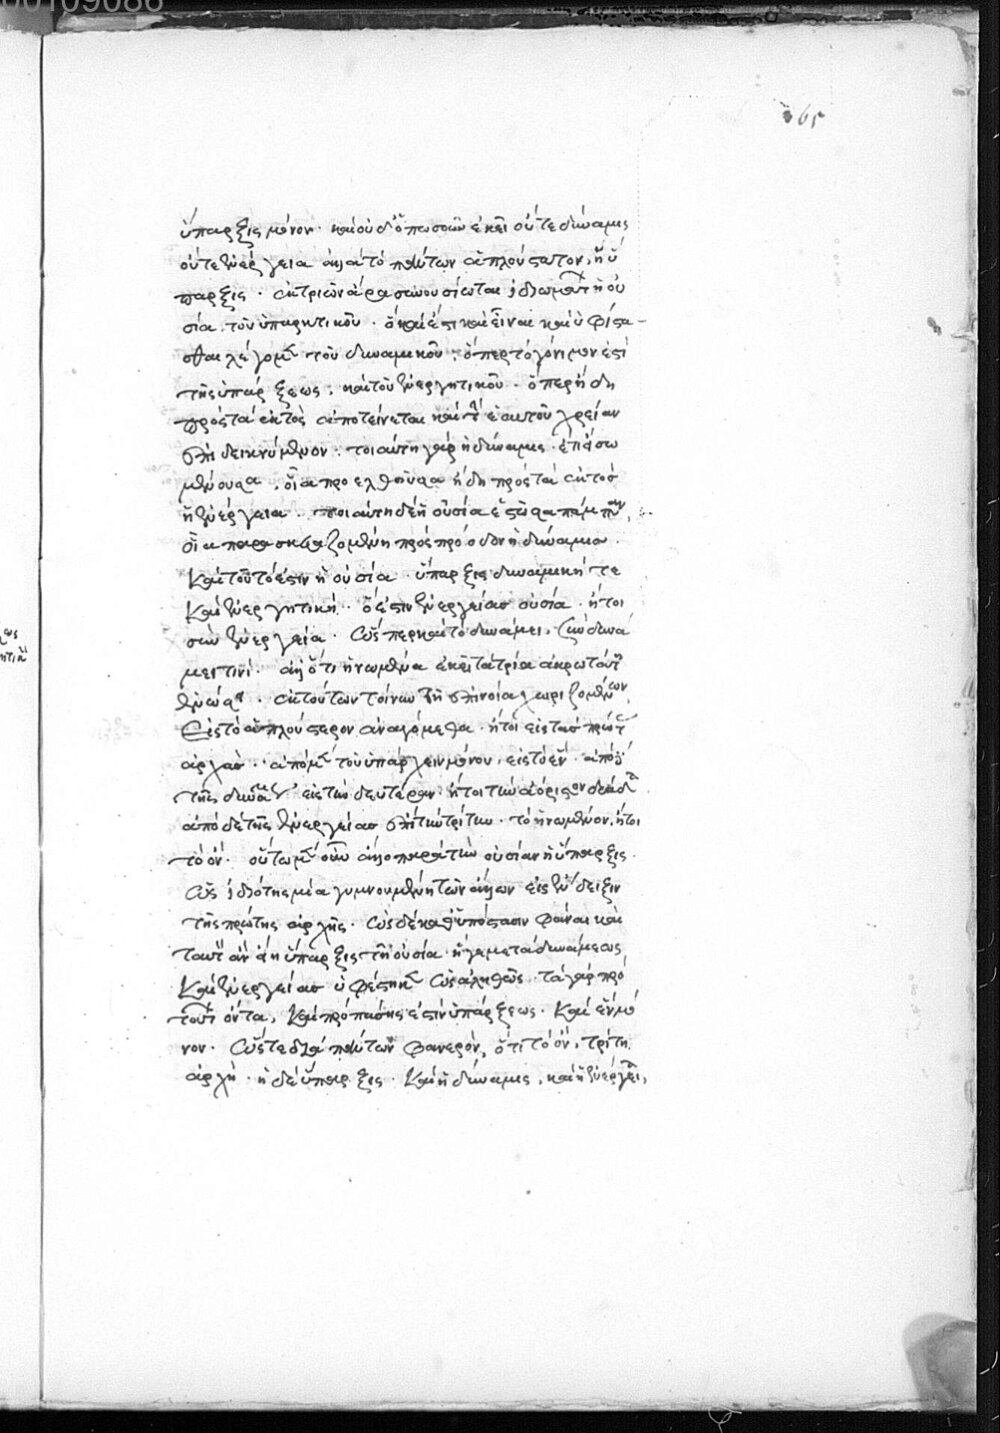 00109086
65
ὕπαρξις μόνον· καὶ οὐδ' ὁπωσοῦν ἐκεῖ οὔτε δύναμις
οὔτε ἐνέργεια ἀλλὰ τὸ πάντων ἁπλούστατον, ἡ ὕ
παρξις· ἐκ τριῶν ἄρα συνουσίωται ἰδιωμάτων ἡ οὐ
σία. τοῦ ὑπαρκτικοῦ· ὃ καί ἐστι καὶ εἶναι καὶ ὑφίστα-
σθαι λέγομεν τοῦ δυναμικοῦ· ὅπερ τὸ γόνιμόν ἐστι
τῆς ὑπάρξεως· καὶ τοῦ ἐνεργητικοῦ· ὅπερ ἤδη
πρὸς τὰ ἐκτὸς ἀποτείνεται καὶ τὴν ἑαυτοῦ χρείαν
ἐπιδεικνύμενον· τοιαύτη γὰρ ἡ δύναμις
οἷα προελθοῦσα ἤδη πρὸς τὰ ἐκτὸς
ἡ ἐνέργεια· τοιαύτη δὲ ἡ οὐσία ἑστῶσα πάμπαν
οἷα παρασκευαζομένη πρὸς πρόοδον ἡ δύναμις.
Καὶ τοῦτό ἐστιν ἡ οὐσία· ὕπαρξις δυναμική τε
Καὶ ἐνεργητική· ὅ ἐστιν ἐνεργείας οὐσία· ἤτοι
σὺν ἐνεργείᾳ· ὥσπερ καὶ τὸ δυνάμει, σὺν δυνά
μει τινί· ἀλλ' ὅτι ἡνωμένα ἐκεῖ τὰ τρία
ἐκ τούτων τοίνυν τῇ ἐπινοίᾳ χωριζομένων
Εἰς τὸ ἁπλούστερον ἀναγόμεθα· ἤτοι εἰς τὰς πρώτας
ἀρχάς· ἀπὸ μὲν τοῦ ὑπάρχειν μόνον, εἰς τὸ ἕν· ἀπὸ δὲ
τῆς δυνάμεως εἰς τὴν δευτέραν· ἤτοι τὴν ἀόριστον δυάδα
ἀπὸ δὲ τῆς ἐνεργείας ἐπὶ τὴν τρίτην· τὸ ἡνωμένον, ἤτοι
τὸ ὄν· οὕτω μὲν οὖν ἄλλο παρὰ τὴν οὐσίαν ἡ ὕπαρξις.
Ὡς ἰδιότης μία γυμνουμένη τῶν ἄλλων εἰς ἔνδειξιν
τῆς πρώτης ἀρχῆς· ὡς δὲ καθ' ὑπόστασιν φάναι καὶ
ταυτὸν ἂν εἴη ὕπαρξις τῇ οὐσίᾳ· ἥ γε μετὰ δυνάμεως
Καὶ ἐνεργείας ὑφέστηκεν ὡς ἀληθῶς· τὰ γὰρ πρὸ
τούτων ὄντα, Καὶ πρὸ πάσης ἐστὶν ὑπάρξεως· Καὶ ἓν μό
νον· Ὥστε διὰ πάντων φανερόν, ὅτι τὸ ὄν, τρίτη
ἀρχή· ἡ δὲ ὕπαρξις· Καὶ ἡ δύναμις, καὶ ἡ ἐνέργεια,